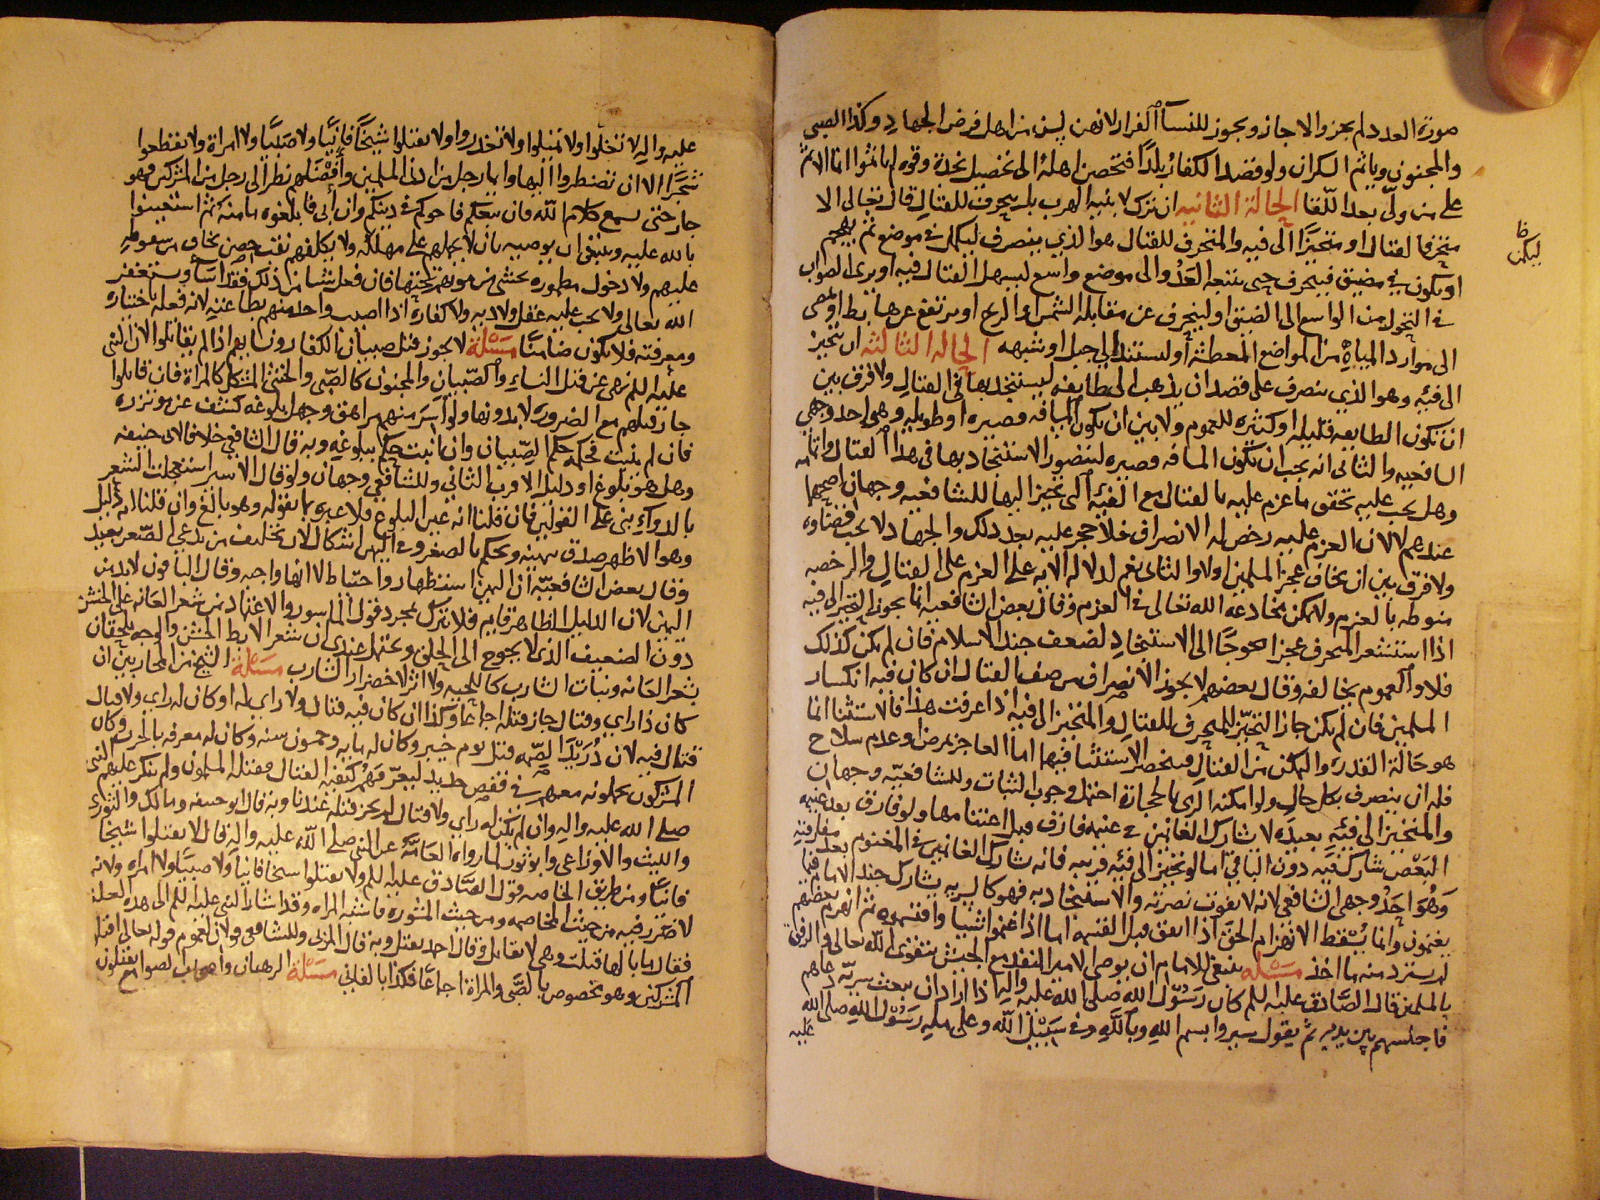 صورة العدد لم يجز والا جاز ويجوز للنسآء الفرار لانهن ليسن من اهل فرض الجهاد وكذا الصبي
والمجنون وياثم السكران ولو قصد الكفار بلدًا فتحصن اهله الى تحصيل نجدة وقوة لم ياثموا انما الاثم
على من ولّى بعد اللقا الحالة الثانية ان يترك لا بنية الهرب بل يتحرف للقتال قال تعالى الا
متحرفا لقتال او متحيزًا الى فية والمتحرف للقتال هو الذي ينصرف ليكمن في موضع ثم يهجم
او يكون في مضيق فيتحرف حتى يتبعه العدو الى موضع واسع ليسهل القتال فيه او يرى الصواب
في التحول من الواسع الى الضيق او لينحرف عن مقابلة الشمس والريح او يرتفع عن هابط او يمضى
الى موارد المياه من المواضع المعطشة او ليستند الى جبل او شبهه الحالة الثالثة ان يتحيز
الى فية وهو الذي ينصرف على قصد ان يذهب الى طايفة ليستنجد بها في القتال ولا فرق بين
ان تكون الطايفة قليلة او كثيرة للعموم ولا بين ان يكون المسافة قصيرة او طويلة وهو احد وجهي
الشافعية والثاني انه يجب ان يكون المسافة قصيرة ليتصور الاستنجاد بها في هذا القتال واتمامه
وهل يجب عليه تحقق ما عزم عليه بالقتال مع الفية التي تحيز اليها للشافعية وجهان اصحهما
عندهم لا لان العزم عليه رخص له الانصراف فلا حجر عليه بعد ذلك والجهاد لا يجب قضاوه
ولا فرق بين ان يخاف عجز المسلمين اولا والثاني نعم لدلالة الاية على العزم على القتال والرخصة
منوطة بالعزم ولا يمكن مخادعة الله تعالى في العزم وقال بعض الشافعية انما يجوز التحيز الى فية
اذا استشعر المتحرف عجزا محوجًا الى الاستنجاد لضعف جند الاسلام فان لم يكن كذلك
فلا والعموم يخالفه وقال بعضهم لا يجوز الانصراف من صف القتال ان كان فيه انكسار
المسلمين فان لم يكن جاز التحيز للمتحرف للقتال والمتحيز الى فية اذا عرفت هذا فالاستثنا انما
هو حالة القدرة والتمكن من القتال فينحصر الاستثنا فيهما اما العاجز بمرض او عدم سلاح
فله ان ينصرف بكل حال ولو امكنه الرمي بالحجارة احتمل وجوب الثبات وللشافعية وجهان
والمتحيز الى فية بعيدة لا يشارك الغانمين في غنيمة فارق قبل اغتنامها ولو فارق بعد غنيمة
البعض شارك فيه دون الباقي اما لو تحيز الى فية قريبة فانه يشارك الغانمين في المغنوم بعد مفارقته
وهو احد وجهي الشافعي لانه لا يفوت نصرته والاستنجاد به فهو كالسرية يشارك جند الامام فيما
يغنمون وانما يسقط الانهزام الحق اذا اتفق قبل القسمة اما اذا غنموا شيئا واقتسموه ثم انهزم بعضهم
لم يسترد منه ما اخذ مسئلة ينبغي للامام ان يوصى الامير المنفذ مع الجيش بتقوى الله تعالى والرفق
بالمسلمين قال الصادق عليه السلم كان رسول الله صلى الله عليه واله اذا اراد ان يبعث سرية دعاهم
فاجلسهم بين يديه ثم يقول سيروا بسم الله وبالله وفي سبيل الله وعلى ملة رسول الله صلى الله
عليه
ليكمن
عليه واله لا تغلوا ولا تمثلوا ولا تغدروا ولا تقتلوا شيخًا فانيًا ولا صبيًا ولا امراة ولا تقطعوا
شجرًا الا ان تضطروا اليها وايما رجل من ادنى المسلمين وافضلهم نظر الى رجل من المشركين فهو
جار حتى يسمع كلام الله فان تبعكم فاخوكم في دينكم وان أبى فابلغوه مامنه ثم استعينوا
بالله عليه وينبغي ان يوصيه بان لا يحملهم على مهلكة ولا يكلفهم نقب حصن يخاف من سقوطه
عليهم ولا دخول مطمورة يخشى من موتهم تحتها فان فعل شيئا من ذلك فقد اسآء ويستغفر
الله تعالى ولا يجب عليه عقل ولا دية ولا كفارة اذا اصيب واحد منهم بطاعته لانه فعله باختياره
ومعرفته فلا يكون ضامنًا مسئلة لا يجوز قتل صبيان الكفار ونسايهم اذا لم يقاتلوا لان النبي
عليه السلم نهى عن قتل النساء والصبيان والمجنون كالصبي والخنثى المشكل كالمراة فان قاتلوا
جاز قتلهم مع الضرورة لا بدونها ولو اسر منهم مراهق وجهل بلوغه كشف عن مؤتزره
فان لم ينبت فحكمه حكم الصبيان وان انبت حكم ببلوغه وبه قال الشافعي خلافا لابي حنيفة
وهل هو بلوغ او دليل الاقرب الثاني وللشافعي وجهان ولو قال الاسير استعجلت الشعر
بالدواء بنى على القولين فان قلنا انه عين البلوغ فلا عبرة بما يقوله وهو بالغ وان قلنا انه دليل
وهو الاظهر صدق بيمينه ويحكم بالصغر وفي اليمين اشكال لان تخليف من يدعى الصغر بعيد
وقال بعض الشافعية ان اليمين استظهار واحتياط لا انها واجبة وقال الباقون لا بد من
اليمين لان الدليل الظاهر قايم فلا يترك بمجرد قول الماسور والاعتماد من شعر العانة على الخشن
دون الضعيف الذي لا يحوج الى الحلق ويحتمل عندي ان شعر الابط الخشن والوجه يلحقان
بشعر العانة ونبات الشارب كاللحية ولا اثر لاخضرار الشارب مسئلة الشيخ من المحاربين ان
كان ذا راي وقتال جاز قتله اجماعًا وكذا ان كان فيه قتال ولا راي له او كان له راي ولا قتال
فيه لان دُرَيدَ بن الصمة قتل يوم خيبر وكان له ماية وخمسون سنة وكان له معرفة بالحرب وكان
المشركون يحملونه معهم في قفص حديد ليعرّفهم كيفية القتال فقتله المسلمون ولم ينكر عليهم النبي
صلى الله عليه واله وان لم يكن له راي ولا قتال لم يجز قتله عندنا وبه قال ابو حنيفة ومالك والثوري
والليث والاوزاعي وابو ثور لما رواه العامة عن النبي صلى الله عليه واله قال لا تقتلوا شيخا
فانيًا ومن طريق الخاصة قول الصادق عليه السلم ولا تقتلوا شيخا فانيًا ولا صبيًا ولا امراة ولانه
لا ضرر فيه من حيث المخاصمة ومن حيث المشورة فاشبه المراة وقد اشار النبي عليه السلم الى هذه العلة
فقال ما بالها قتلت وهي لا تقاتل وقال احمد يقتل وبه قال المزني وللشافعي قولان لعموم قوله تعالى اقتلوا
المشركين وهو مخصوص بالصبي والمراة اجماعًا فكذا بالفاني مسئلة الرهبان واصحاب الصوامع يقتلون